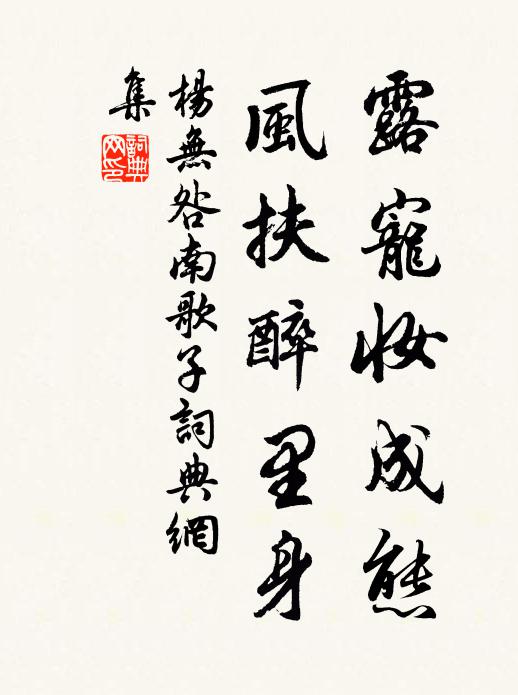 露寵妝成態
風扶醉里身
楊無咎南歌子詞典網
集
詞典网印